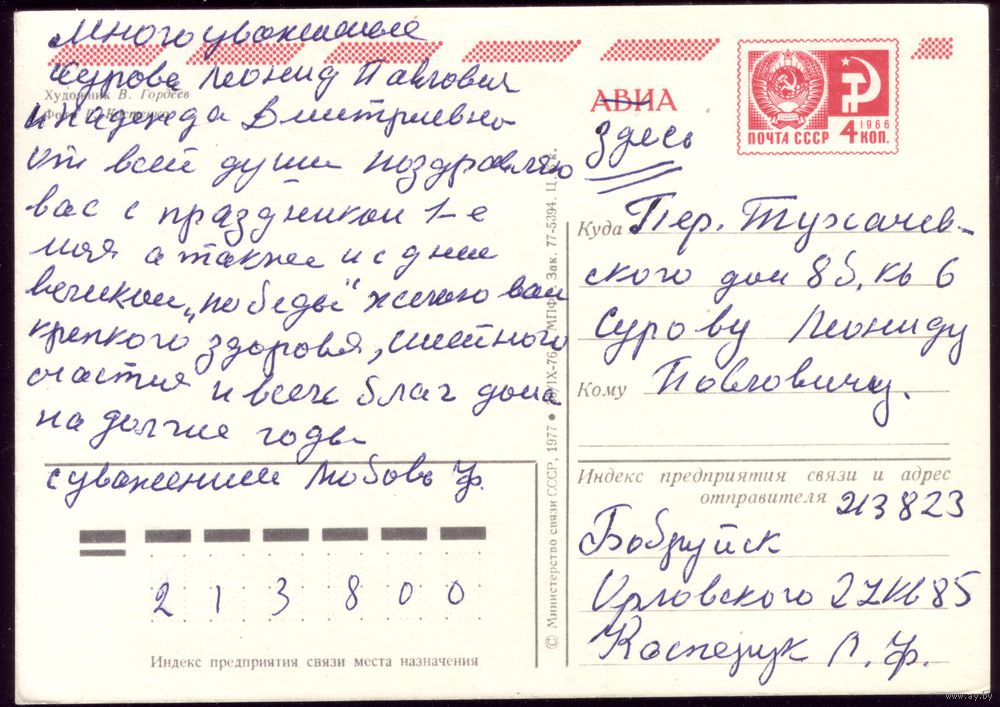 Многоуважаемые
Сурова Леонид Павлович
Художник В. Гордеев
Фото Г. Костенко
и Надежда Дмитриевна
от всей души поздравляю
вас с праздником 1-е
мая а также и с днем
великой „победы" желаю вам
крепкого здоровья, счастья
и всех благ дома
на долгие годы
с уважением Любовь Ф.
АВИА
здесь
1966
ПОЧТА СССР 4 КОП.
Куда Пер. Тухачев-
ского дом 8б, кв 6
Сурову Леониду
Кому Павловичу.
Индекс предприятия связи и адрес
отправителя 213823
Бобруйск
Орловского 27 кв 85
Л. Ф.
2 1 3 8 0 0
Индекс предприятия связи места назначения
© Министерство связи СССР, 1977 ● /IX-76 МПФГ Зак. 77-5394. Ц. к.
www.ay.by